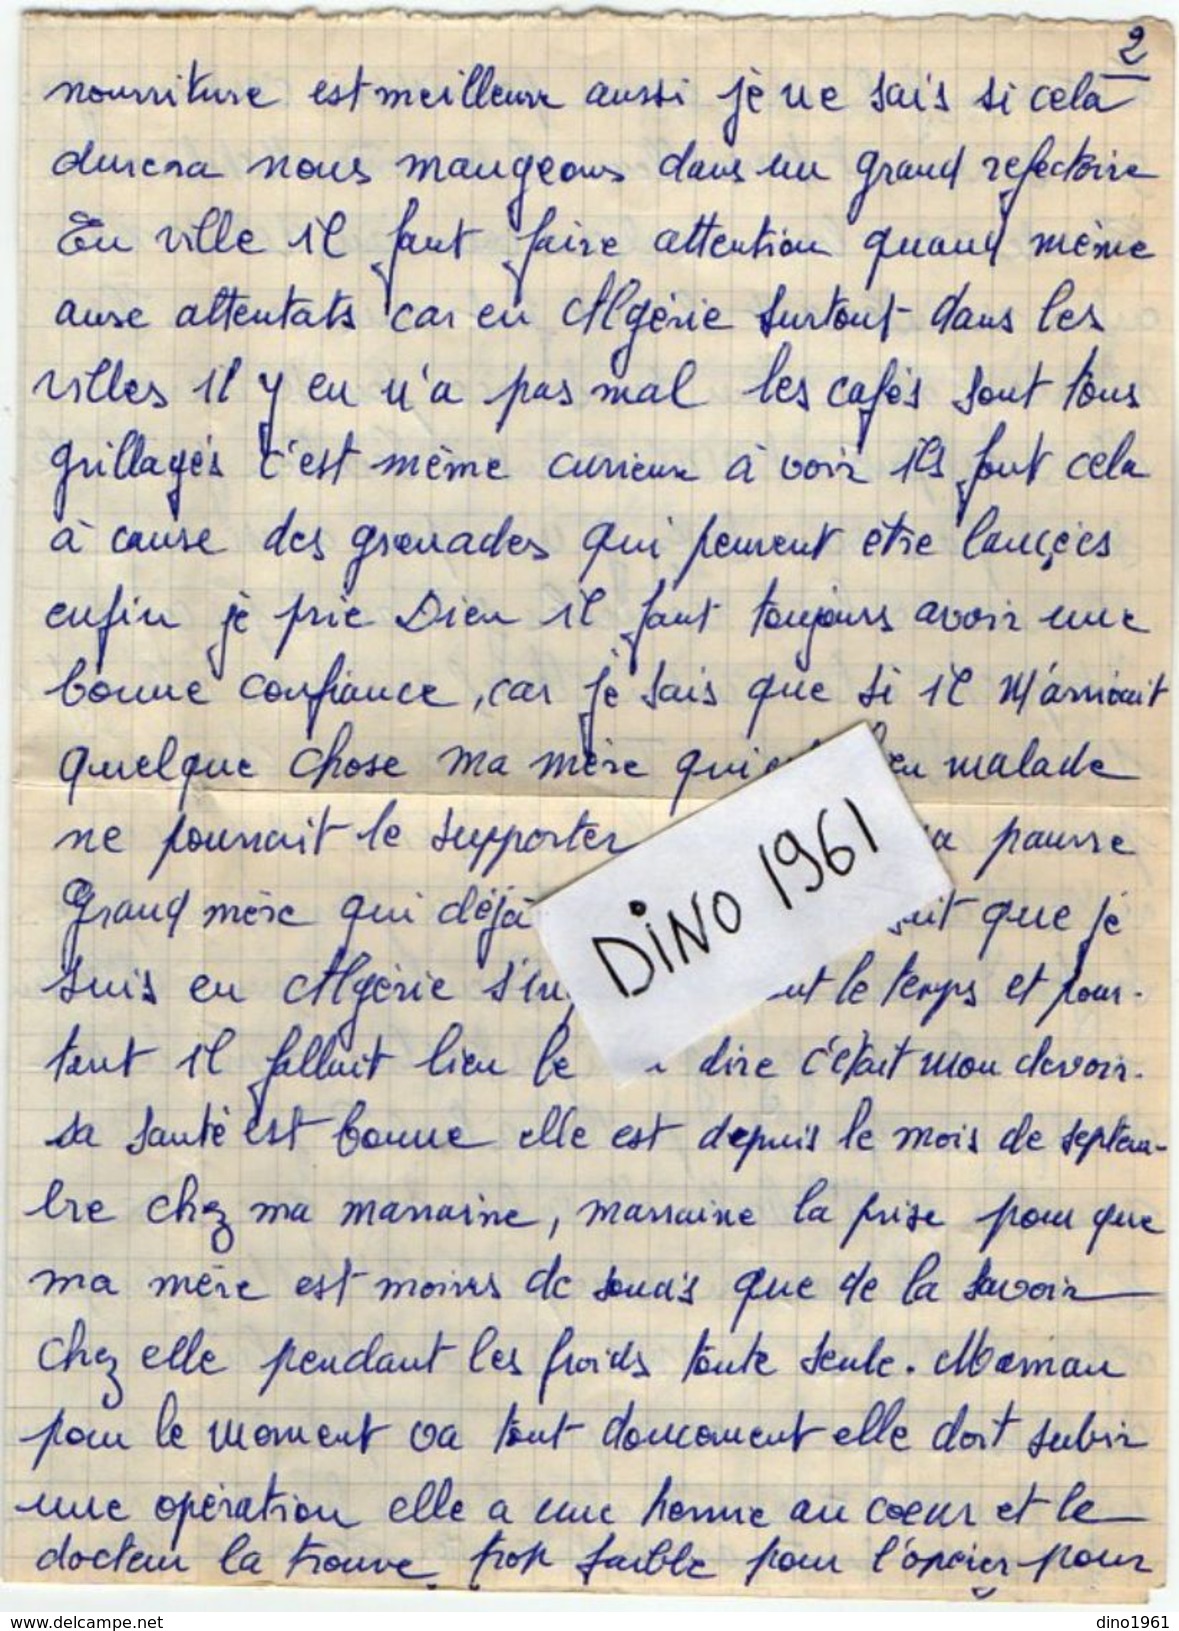 2
nourriture est meilleure aussi je ne sais si cela
durera nous mangeons dans un grand refectoire
En ville il faut faire attention quand même
aux attentats car en Algérie surtout dans les
villes il y en n'a pas mal les cafés sont tous
grillagés c'est même curieux à voir ils font cela
à cause des grenades qui peuvent être lançées
enfin je prie Dieu il faut toujours avoir une
bonne confiance, car je sais que si il m'arrivait
quelque chose ma mère qui malade
ne pourrait le supporter pauvre
Grand mère qui déjà que je
suis en Algérie le temps et pour-
tant il fallait bien le dire c'était mon devoir.
sa santé est bonne elle est depuis le mois de septem-
bre chez ma marraine, marraine la prise pour que
ma mère est moins de soucis que de la savoir
chez elle pendant les froids toute seule. Maman
pour le moment va tout doucement elle doit subir
une opération elle a une hernie au coeur et le
docteur la trouve trop faible pour l'opérer pour
DiNO 1961
www.delcampe.net
dino1961